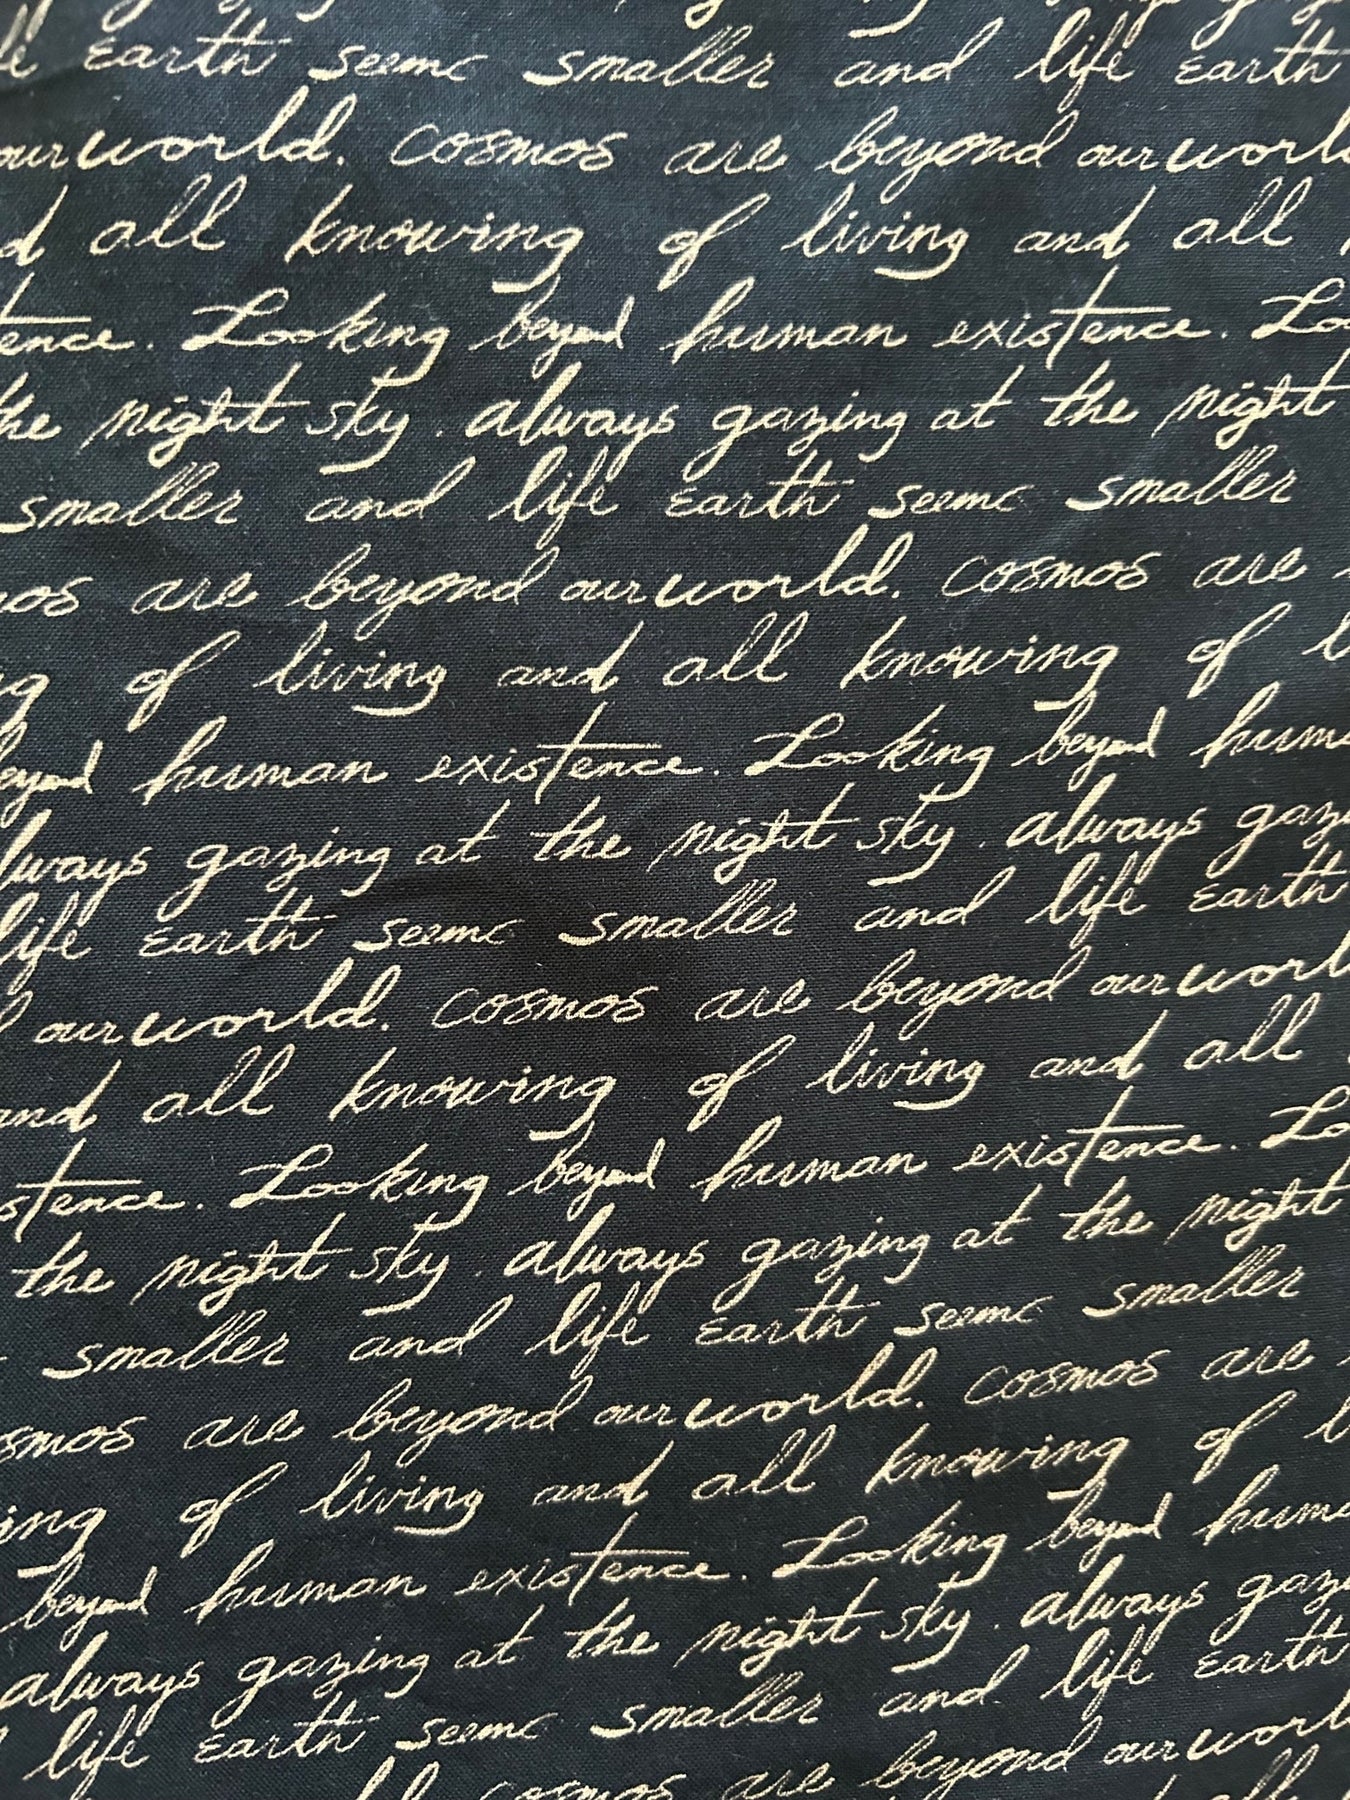 life earth seems smaller and life earth
our world. cosmos are beyond our world
and all knowing of living and all
tence. Looking beyond human existence. Loo
the night sky. always gazing at the night
smaller and life earth seems smaller
mos are beyond our world. cosmos are
ng of living and all knowing of l
beyond human existence. Looking beyond huma
always gazing at the night sky. always gazi
life earth seems smaller and life earth
our world. cosmos are beyond our world
and all knowing of living and all
stence. Looking beyond human existence. Lo
the night sky. always gazing at the night
smaller and life earth seems smaller
osmos are beyond our world. cosmos are
ing of living and all knowing of l
beyond human existence. Looking beyond huma
always gazing at the night sky. always gazi
life earth seems smaller and life earth
cosmos are beyond our world